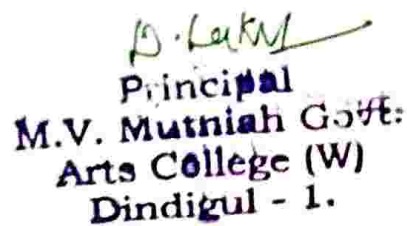 Principal
M.V. Muthiah Govt:
Arts College (W)
Dindigul - 1.